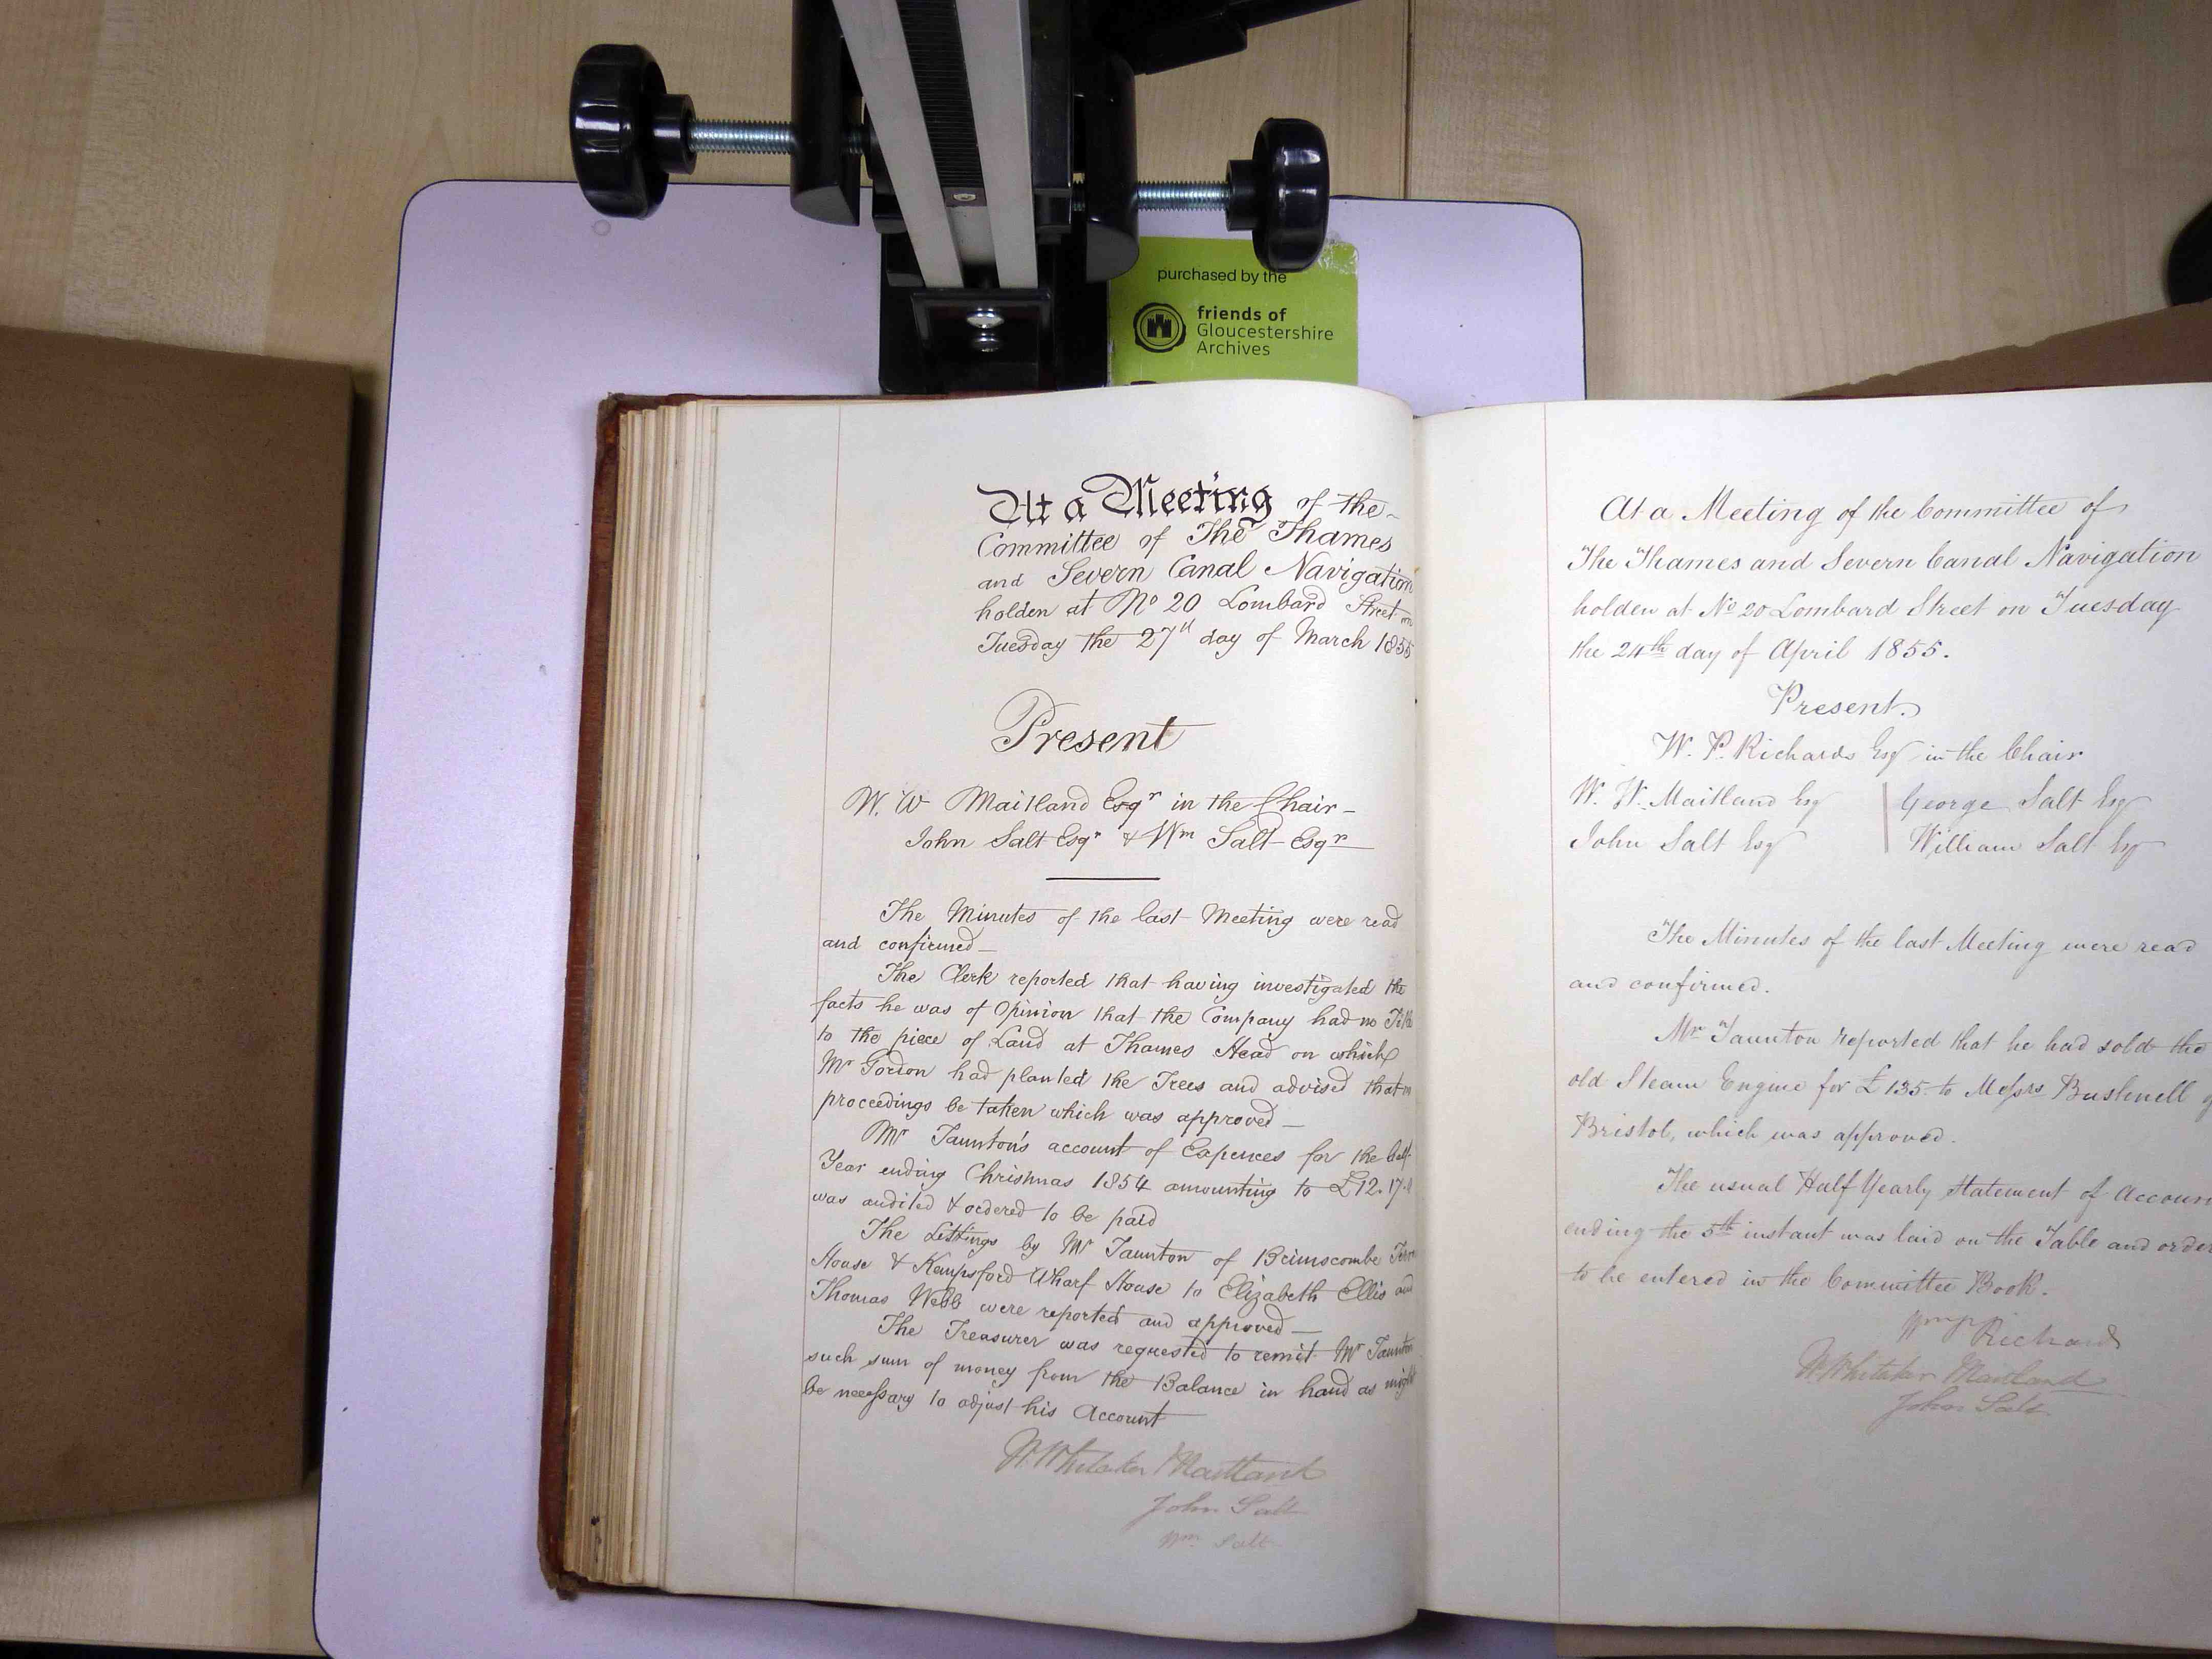 purchased by the
friends of
Gloucestershire
Archives
At a Meeting of the
Committee of The Thames
and Severn Canal Navigation
holden at No 20 Lombard Street on
Tuesday the 27th day of March 1855
Present
W. W Maitland Esqr in the Chair
John Salt Esqr & Wm Salt Esqr
The Minutes of the last Meeting were read
and confirmed
The Clerk reported that having investigated the
facts he was of Opinion that the Company had no
to the piece of Land at Thames Head on which
Mr Gordon had planted the Trees and advised that
proceedings be taken which was approved
Mr Taunton's account of Expences for the half
Year ending Christmas 1854 amounting to £12.17.
was audited & ordered to be paid
The Lettings by Mr Taunton of Brimscombe
House & Kempsford Wharf House to Elizabeth Ellis and
Thomas Webb were reported and approved
The Treasurer was requested to remit Mr Taunton
such sum of money from the Balance in hand as might
be necessary to adjust his Account
W Whitaker Maitland
John Salt
Wm Salt
At a Meeting of the Committee of
The Thames and Severn Canal Navigation
holden at No 20 Lombard Street on Tuesday
the 24th day of April 1855.
Present.
W. P. Richards Esq in the Chair
W. W. Maitland Esq George Salt Esq
John Salt Esq William Salt Esq
The Minutes of the last Meeting were read
and confirmed.
Mr Taunton reported that he had sold the
old Steam Engine for £135 to Messrs Bushnell
Bristol, which was approved.
The usual Half Yearly Statement of
ending the 5th instant was laid on the Table and
to be entered in the Committee Book.
Wm P Richards
W Whitaker Maitland
John Salt